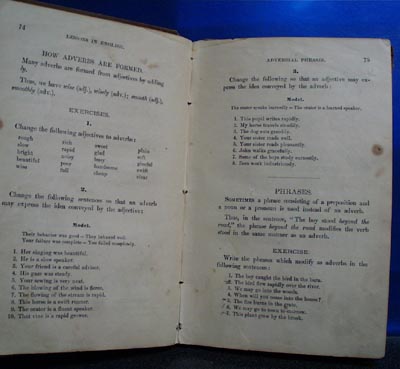 74
LESSONS IN ENGLISH.
HOW ADVERBS ARE FORMED.
Many adverbs are formed from adjectives by adding
ly.
Thus, we have wise (adj.), wisely (adv.); smooth (adj.),
smoothly (adv.).
EXERCISES.
1.
Change the following adjectives to adverbs:
rough sweet plain
slow rich
bright rapid glad soft
beautiful noisy busy
poor handsome
wise full cheap clear
2.
Change the following sentences so that an adverb
may express the idea conveyed by the adjective:
Model.
Their behavior was good = They behaved well.
Your failure was complete = You failed completely.
1. Her singing was beautiful.
2. He is a slow speaker.
3. Your friend is a careful adviser.
4. His gaze was steady.
5. Your sewing is very neat.
6. The blowing of the wind is fierce.
7. The flowing of the stream is rapid.
8. This horse is a swift runner.
9. The orator is a fluent speaker.
10. That vine is a rapid grower.
ADVERBIAL PHRASES.
75
3.
Change the following so that an adjective may express
the idea conveyed by the adverb:
Model.
The orator speaks learnedly = The orator is a learned speaker.
1. This pupil writes rapidly.
2. My horse travels steadily.
3. The dog runs
4. Your sister reads well.
5. Your sister reads pleasantly.
6. John walks gracefully.
7. Some of the boys study earnestly.
8. Jane works industriously.
PHRASES.
SOMETIMES a phrase consisting of a preposition and
a noun or a pronoun is used instead of an adverb.
Thus, in the sentence, "The boy stood beyond the
road," the phrase beyond the road modifies the verb
stood in the same manner as an adverb.
EXERCISE.
Write the phrases which modify as adverbs in the
following sentences:
1. The boy caught the bird in the barn.
2. The bird flew rapidly over the river.
3. We may go into the woods.
4. When will you come into the house?
5. The fire burns in the grate.
6. We may go to town to-morrow.
7. This plant grew by the brook.